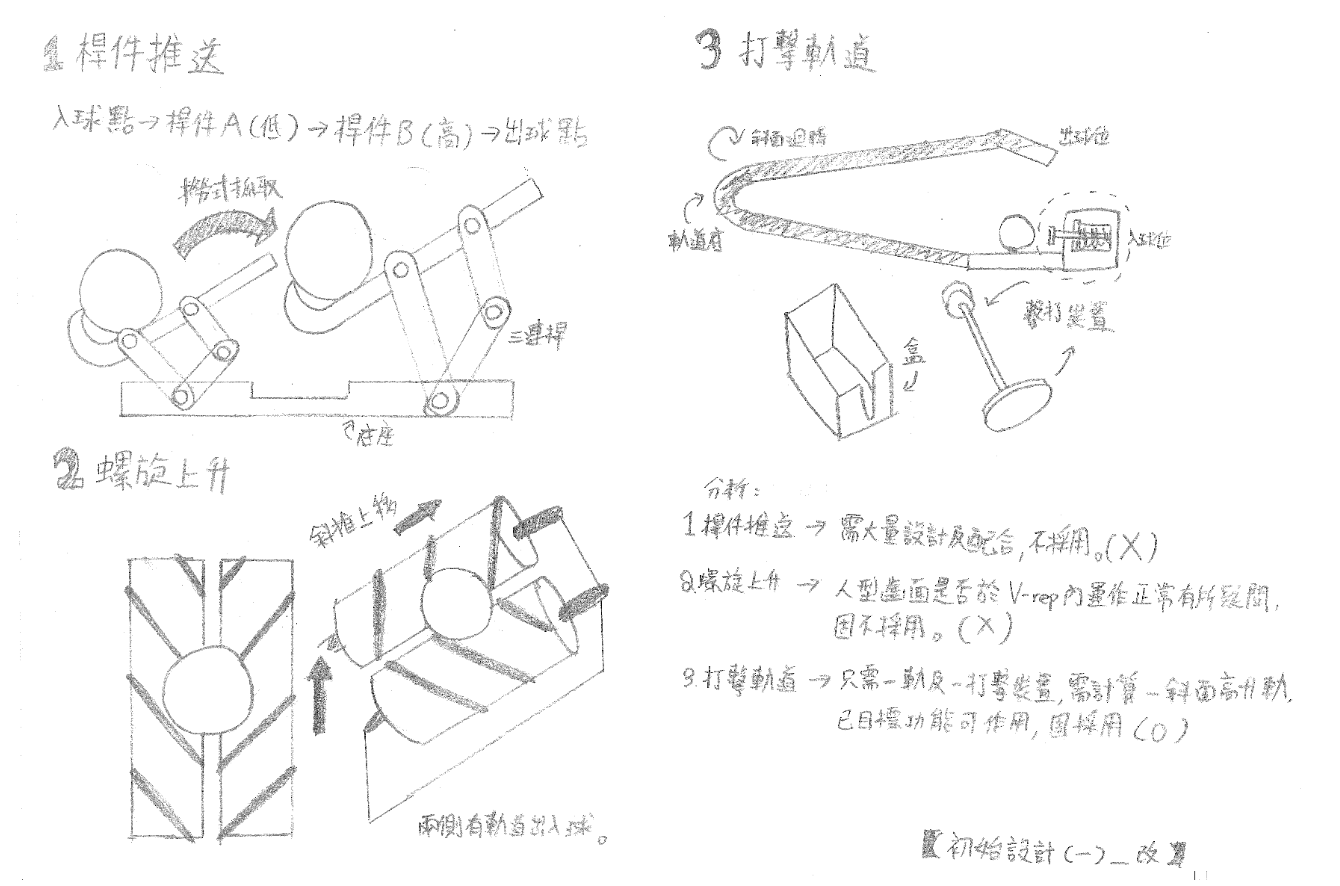 1 桿件推送
入球點→桿件A(低)→桿件B(高)→出球點
抓取
三連桿
底座
2 螺旋上升
斜推上物
兩側有軌道出入球。
3 打擊軌道
斜面迴勝
出球位
軌道底
入球位
擊打裝置
盒
分析:
1.桿件推送 → 需大量設計及配合,不採用。(X)
2.螺旋上升 → 人型齒面是否於V-rep內運作正常有所疑問,
因不採用。(X)
3.打擊軌道 → 只需一軌及一打擊裝置,需計算一斜面高升軌,
已目標功能可作用,因採用(O)
【初始設計(一)_改】